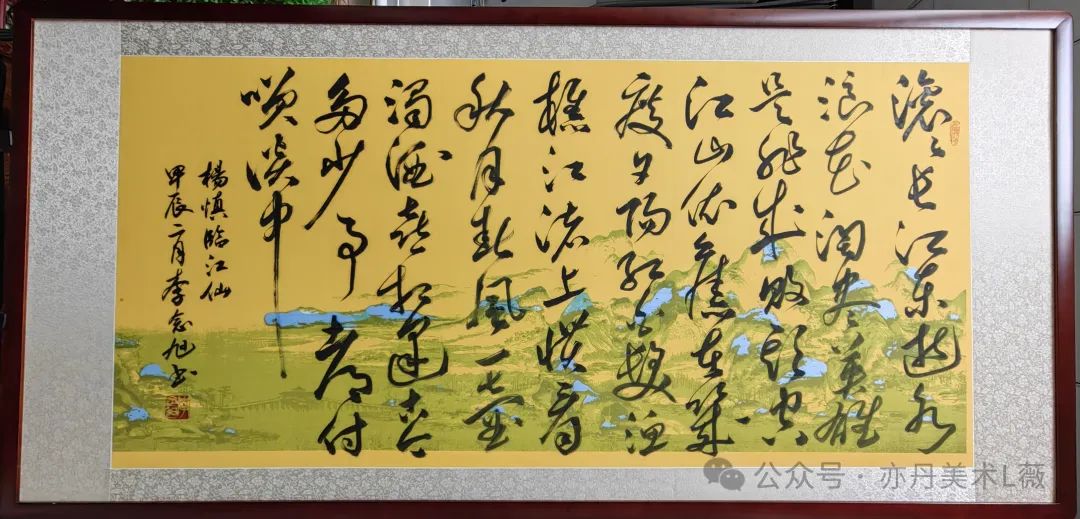 滚〻长江东逝水
浪花淘尽英雄
是非成败转头空
江山依舊在幾
度夕陽紅白髮漁
樵江渚上慣看
秋月春風一壺
濁酒喜相逢古今
多少事都付
笑談中
楊慎臨江仙
甲辰二月李念旭书
公众号·亦丹美术L薇